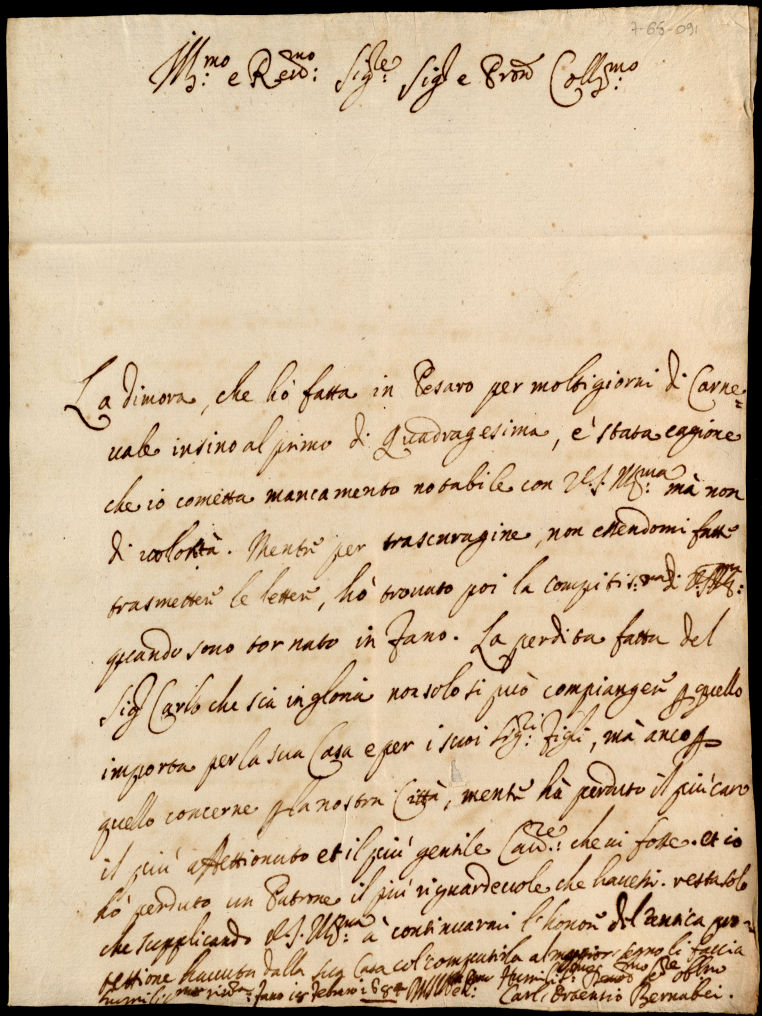 7-65-091
Ill:mo e Reu:mo Sig:re Sig.r e Pron Coll:mo
La dimora, che hò fatta in Pesaro per molti giorni di Carne=
uale insino al primo di Quadragesima, è stata cagione
che io cometta mancamento notabile con V.S. Ill:ma mà non
di uolontà. Mentre per trascuragine, non essendomi fatte
trasmettere le lettere, hò trouato poi la compitis:ma di V.S. Ill:ma
quando sono tornato in Fano. La perdita fatta del
Sig.r Carlo che sia in gloria non solo si può compiangere p quello
importa per la sua Casa e per i suoi Sig:ri Figli, mà anco p
quello concerne p la nostra Città, mentre hà perduto il piu caro
il piu affettionato et il piu gentile Cau:re che ui fosse. et io
hò perduto un Patrone il piu riguardeuole che hauessi. resta solo
che supplicando V.S. Ill:ma à continuarmi l'honore dell'antica pro-
tettione hauuta dalla sua Casa col compatirla al maggior segno li faccio
humilis:ma riu:za Fano 18 Febraro 1684 Di V.S. Ill:ma e Reu:ma
Humilis:mo Deuot:mo et Obl:mo
Carl' Ortensio Bernabei.